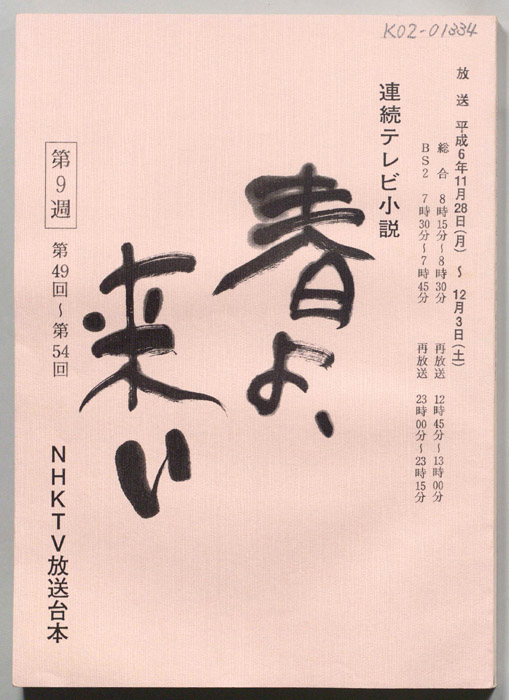 K02-01334
放送 平成6年11月28日(月) ～ 12月3日(土)
総合 8時15分～8時30分 再放送 12時45分～13時00分
BS2 7時30分～7時45分 再放送 23時00分～23時15分
連続テレビ小説
春よ、
来い
第9週
第49回～第54回
NHKTV放送台本